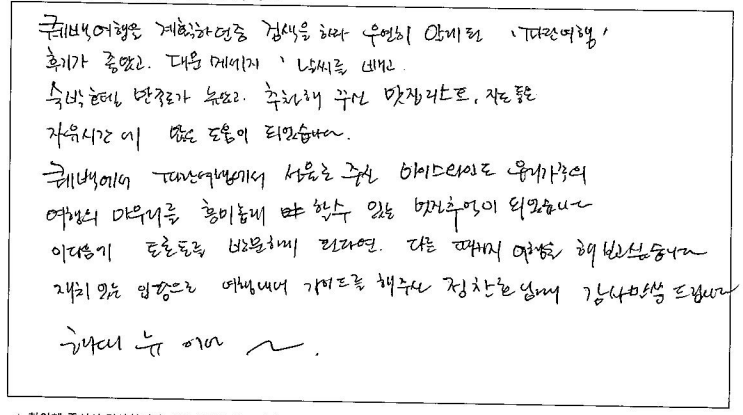 퀘백여행은 계획하던중 검색을 하다 우연히 알게된 '파란여행'
후기가 좋았고. 다운 메세지, 날씨를 빼고
숙박호텔 만족도가 높았고. 추천해 주신 맛집리스트, 지도 등은
자유시간에 많은 도움이 되었습니다.
퀘백에서 파란여행에서 선물로 주신 아이스와인도 우리가족의
여행의 마무리를 흥미롭게 할수 있는 멋진추억이 되었습니다
이다음에 토론토를 방문하게 된다면. 다른 패키지 여행을 해보고싶습니다
재치 있는 입담으로 여행내내 가이드를 해주신 정찬호님께 감사말씀 드립니다
해피 뉴 이어 ~.